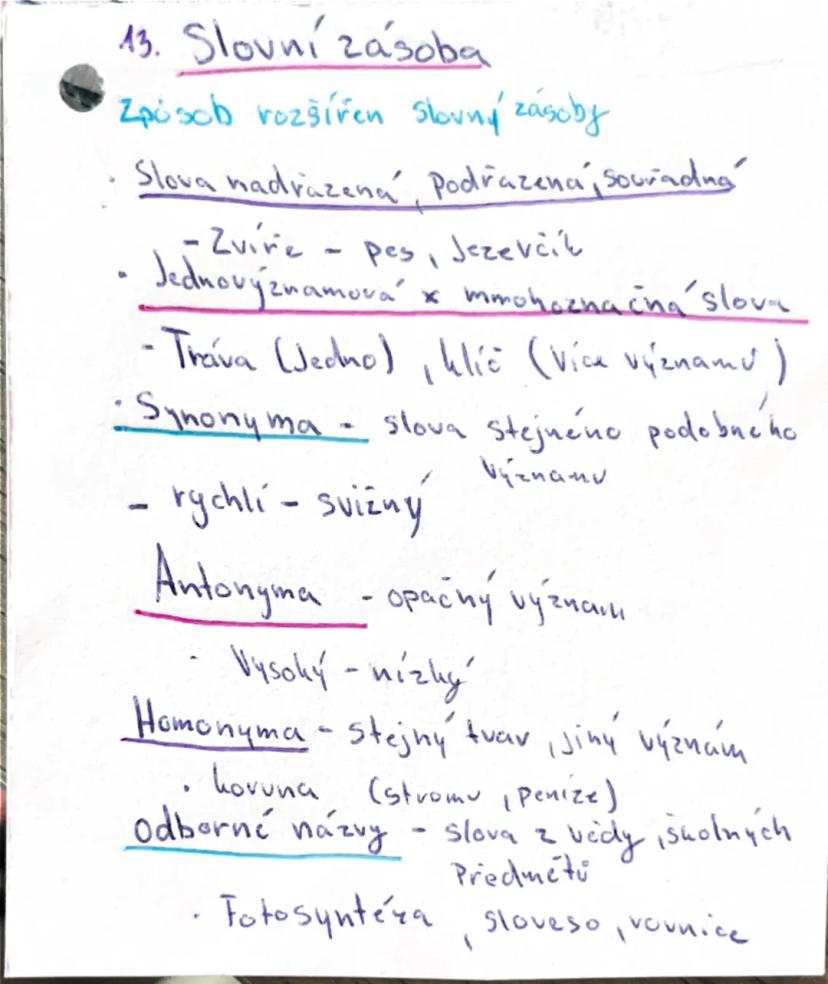 13. Slovní zásoba
Způsob rozšířen slovný zásoby
· Slova nadřazená, podřazená, souřadná
- Zvíře - pes, Jezevčík
· Jednovýznamová x mmohoznačná slova
- Tráva (Jedno), klíč (více významů)
· Synonyma - slova stejného podobného
významu
- rychlí - svižný
Antonyma - opačný význam
· Vysoký - nízký
Homonyma - stejný tvar, jiný význám
· koruna (stromu, peníze)
Odborné názvy - slova z vědy, školných
Předmětů
· Fotosyntéza, sloveso, rovnice